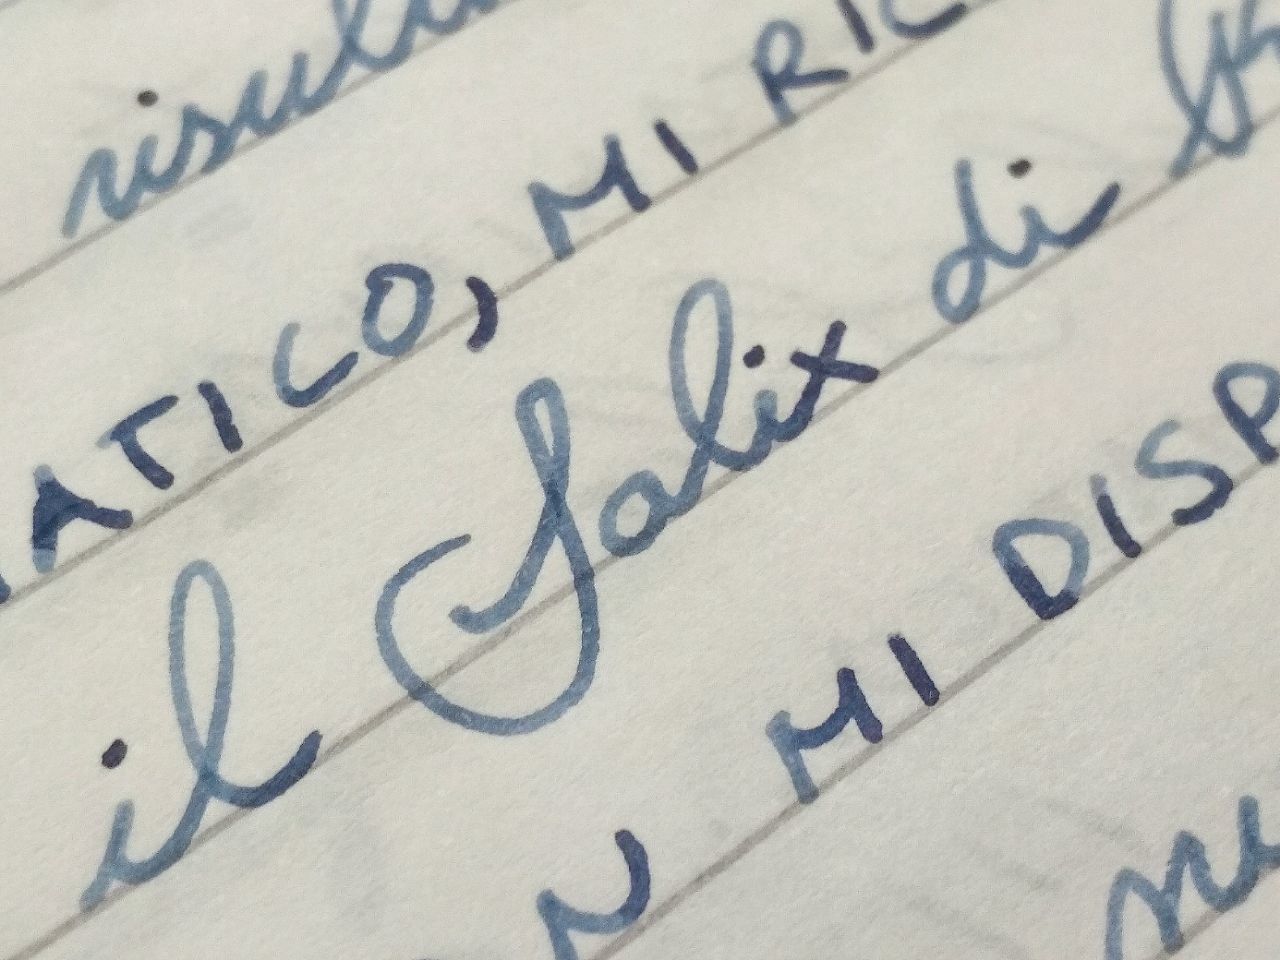 risul
ATICO, MI RIC
il Salix di
N MI DISP